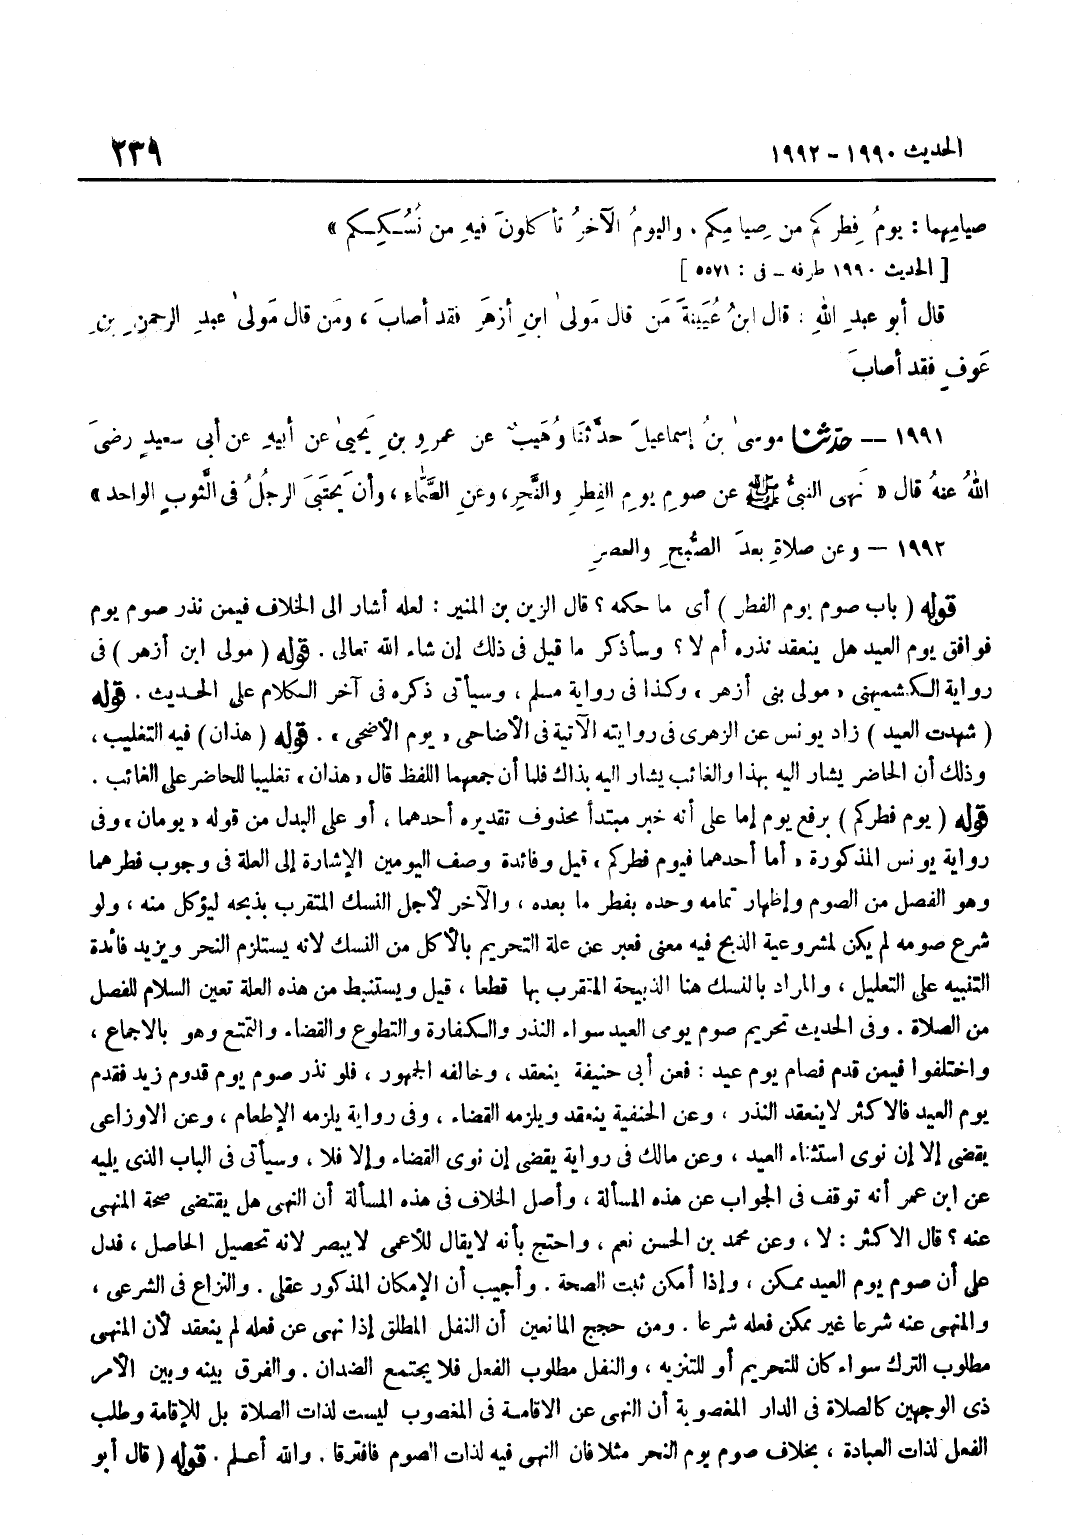 الحديث ١٩٩٠ - ١٩٩٢
٢٣٩
صيامِهما : يومُ فِطرِكم من صِيامِكم ، واليومُ الآخرُ تأكلونَ فيهِ من نُسُكِكم »
[ الحديث ١٩٩٠ طرفه ـ فى : ٥٥٧١ ]
قال أبو عبدِ اللهِ : قال ابنُ عُيَينةَ مَن قال مَولىٰ ابنِ أزهرَ فقد أصابَ ، ومَن قال مَولىٰ عبدِ الرحمنِ بنِ
عَوفٍ فقد أصابَ
١٩٩١ — حدّثنا موسىٰ بنُ إسماعيلَ حدَّثنَا وُهَيبٌ عن عمرِو بنِ يَحيىٰ عن أبيهِ عن أبى سعيدٍ رضىَ
اللهُ عنهُ قال « نَهى النبىُّ ﷺ عن صومِ يومِ الفِطرِ والنَّحرِ، وعنِ الصَّمّاءِ ، وأن يَحتَبىَ الرجلُ فى الثوبِ الواحد »
١٩٩٢ — وعن صلاةٍ بعدَ الصُّبحِ والعصرِ
قوله ( باب صوم يوم الفطر ) أى ما حكمه ؟ قال الزين بن المنير : لعله أشار الى الخلاف فيمن نذر صوم يوم
فوافق يوم العيد هل ينعقد نذره أم لا ؟ وسأذكر ما قيل فى ذلك إن شاء الله تعالى . قوله ( مولى ابن أزهر ) فى
رواية الكشميهنى « مولى بنى أزهر » وكذا فى رواية مسلم ، وسيأتى ذكره فى آخر الكلام على الحديث . قوله
( شهدت العيد ) زاد يونس عن الزهرى فى روايته الآتية فى الأضاحى « يوم الأضحى » . قوله ( هذان ) فيه التغليب ،
وذلك أن الحاضر يشار اليه بهذا والغائب يشار اليه بذاك فلما أن جمعهما اللفظ قال « هذان » تغليبا للحاضر على الغائب .
قوله ( يوم فطركم ) برفع يوم إما على أنه خبر مبتدأ محذوف تقديره أحدهما ، أو على البدل من قوله « يومان » وفى
رواية يونس المذكورة « أما أحدهما فيوم فطركم ، قيل وفائدة وصف اليومين الإشارة إلى العلة فى وجوب فطرهما
وهو الفصل من الصوم وإظهار تمامه وحده بفطر ما بعده ، والآخر لأجل النسك المتقرب بذبحه ليؤكل منه ، ولو
شرع صومه لم يكن لمشروعية الذبح فيه معنى فعبر عن علة التحريم بالأكل من النسك لانه يستلزم النحر ويزيد فائدة
التنبيه على التعليل ، والمراد بالنسك هنا الذبيحة المتقرب بها قطعا ، قيل ويستنبط من هذه العلة تعين السلام للفصل
من الصلاة . وفى الحديث تحريم صوم يومى العيد سواء النذر والكفارة والتطوع والقضاء والتمتع وهو بالاجماع ،
واختلفوا فيمن قدم فصام يوم عيد : فعن أبى حنيفة ينعقد ، وخالفه الجمهور ، فلو نذر صوم يوم قدوم زيد فقدم
يوم العيد فالاكثر لا ينعقد النذر ، وعن الحنفية ينعقد ويلزمه القضاء ، وفى رواية يلزمه الإطعام ، وعن الاوزاعى
يقضى إلا إن نوى استثناء العيد ، وعن مالك فى رواية يقضى إن نوى القضاء وإلا فلا ، وسيأتى فى الباب الذى يليه
عن ابن عمر أنه توقف فى الجواب عن هذه المسألة ، وأصل الخلاف فى هذه المسألة أن النهى هل يقتضى صحة المنهى
عنه ؟ قال الاكثر : لا ، وعن محمد بن الحسن نعم ، واحتج بأنه لا يقال للأعمى لا يبصر لانه تحصيل الحاصل ، فدل
على أن صوم يوم العيد ممكن ، وإذا أمكن ثبت الصحة . وأجيب أن الإمكان المذكور عقلى . والنزاع فى الشرعى ،
والمنهى عنه شرعا غير ممكن فعله شرعا . ومن حجج المانعين أن النفل المطلق إذا نهى عن فعله لم ينعقد لأن المنهى
مطلوب الترك سواء كان للتحريم أو للتنزيه ، والنفل مطلوب الفعل فلا يجتمع الضدان . والفرق بينه وبين الأمر
ذى الوجهين كالصلاة فى الدار المغصوبة أن النهى عن الاقامة فى المغصوب ليست لذات الصلاة بل للإقامة وطلب
الفعل لذات العبادة ، بخلاف صوم يوم النحر مثلا فان النهى فيه لذات الصوم فافترقا . والله أعلم . قوله ( قال أبو